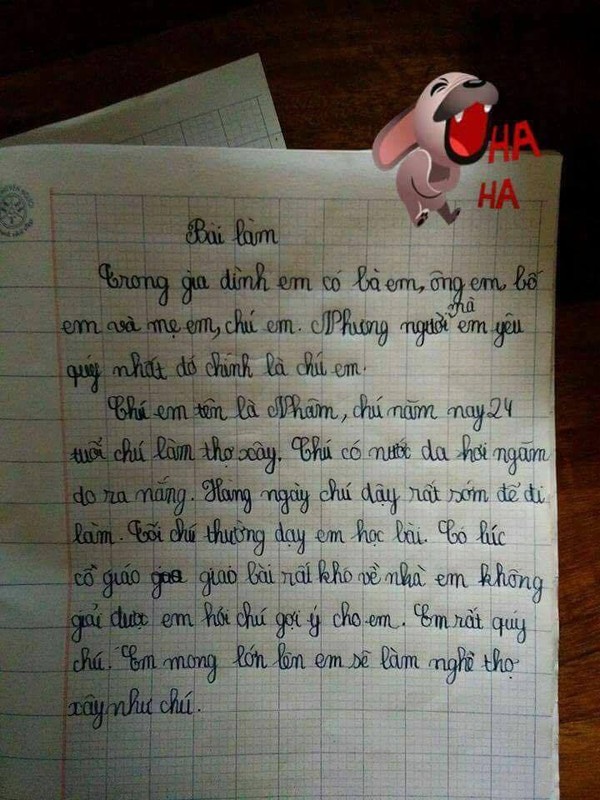 HA
HA
Bài làm
Trong gia đình em có bà em, ông em, bố
em và mẹ em, chú em. Nhưng người mà em yêu
quý nhất đó chính là chú em.
Chú em tên là Nhâm, chú năm nay 24
tuổi chú làm thợ xây. Chú có nước da hơi ngăm
do ra nắng. Hàng ngày chú dậy rất sớm để đi
làm. Tối chú thường dạy em học bài. Có lúc
cô giáo giao bài rất khó về nhà em không
giải được em hỏi chú gợi ý cho em. Em rất quý
chú. Em mong lớn lên em sẽ làm nghề thợ
xây như chú.